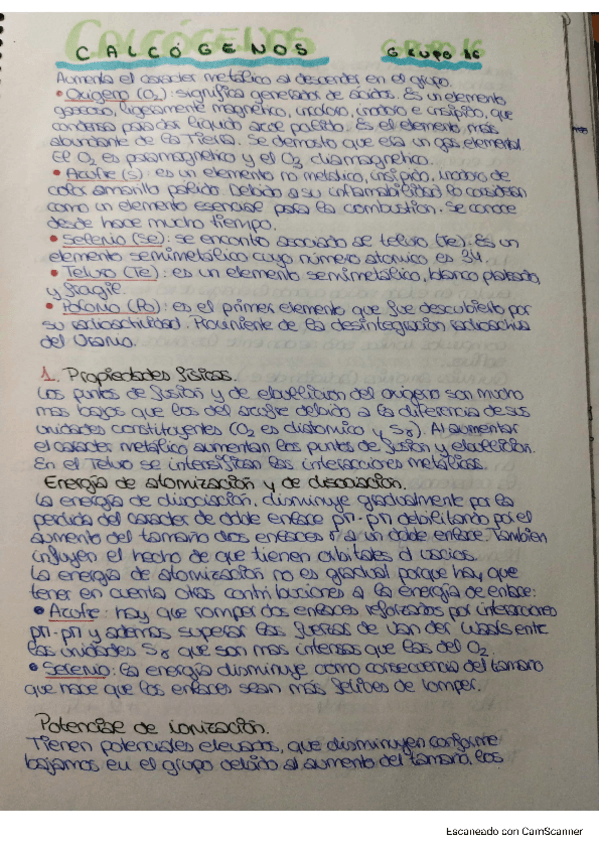 CALCÓGENOS GRUPO 16
Aumenta el caracter metálico al descender en el grupo.
• Oxígeno (O2): significa generador de ácidos. Es un elemento
gaseoso, ligeramente magnético, incoloro, inodoro e insípido, que
condensa para dar líquido azul palido. Es el elemento más
abundante de la Tierra. Se demostó que era un gas elemental
El O2 es paramagnético y el O3 diamagnético.
• Azufre (S): es un elemento no metálico, insípido, inodoro de
color amarillo palido. Debido a su inflamabilidad lo consideran
como un elemento esencial para la combustión. Se conoce
desde hace mucho tiempo.
• Selenio (Se): se encontro asociado se teluro (Te). Es un
elemento semimetálico cuyo número atómico es 34.
• Teluro (Te): es un elemento semimetálico, blanco plateado,
y frágil.
• Polonio (Po): es el primer elemento que fue descubierto por
su radioactividad. Proviniente de la desintegración radioactiva
del Uranio.
1. Propiedades físicas.
Los puntos de fusión y de ebullición del oxígeno son mucho
mas bajos que los del azufre debido a la diferencia de sus
unidades constituyentes (O2 es diatomico y S8). Al aumentar
el caracter metálico aumentan los puntos de fusión y ebullición.
En el Teluro se intensifican las interacciones metálicas.
Energía de atomización y de disociación.
La energía de disociación, disminuye gradualmente por la
perdida del caracter de doble enlace pπ-pπ debilitando por el
aumento del tamaño dos enlaces o a un doble enlace. Tambien
influyen el hecho de que tienen orbitales d vacios.
La energía de atomización no es gradual porque hay que
tener en cuenta otras contribuciones a la energía de enlace:
• Azufre: hay que romper dos enlaces reforzados por interacciones
pπ-pπ y ademas superar las fuerzas de Van der Waals entre
las unidades S8 que son mas intensas que las del O2.
• Selenio: la energía disminuye como consecuencia del tamaño
que hace que los enlaces sean más de romper.
Potenciale de ionización.
Tienen potenciales elevados, que disminuyen conforme
bajamos en el grupo debido al aumento del tamaño, los
Escaneado con CamScanner